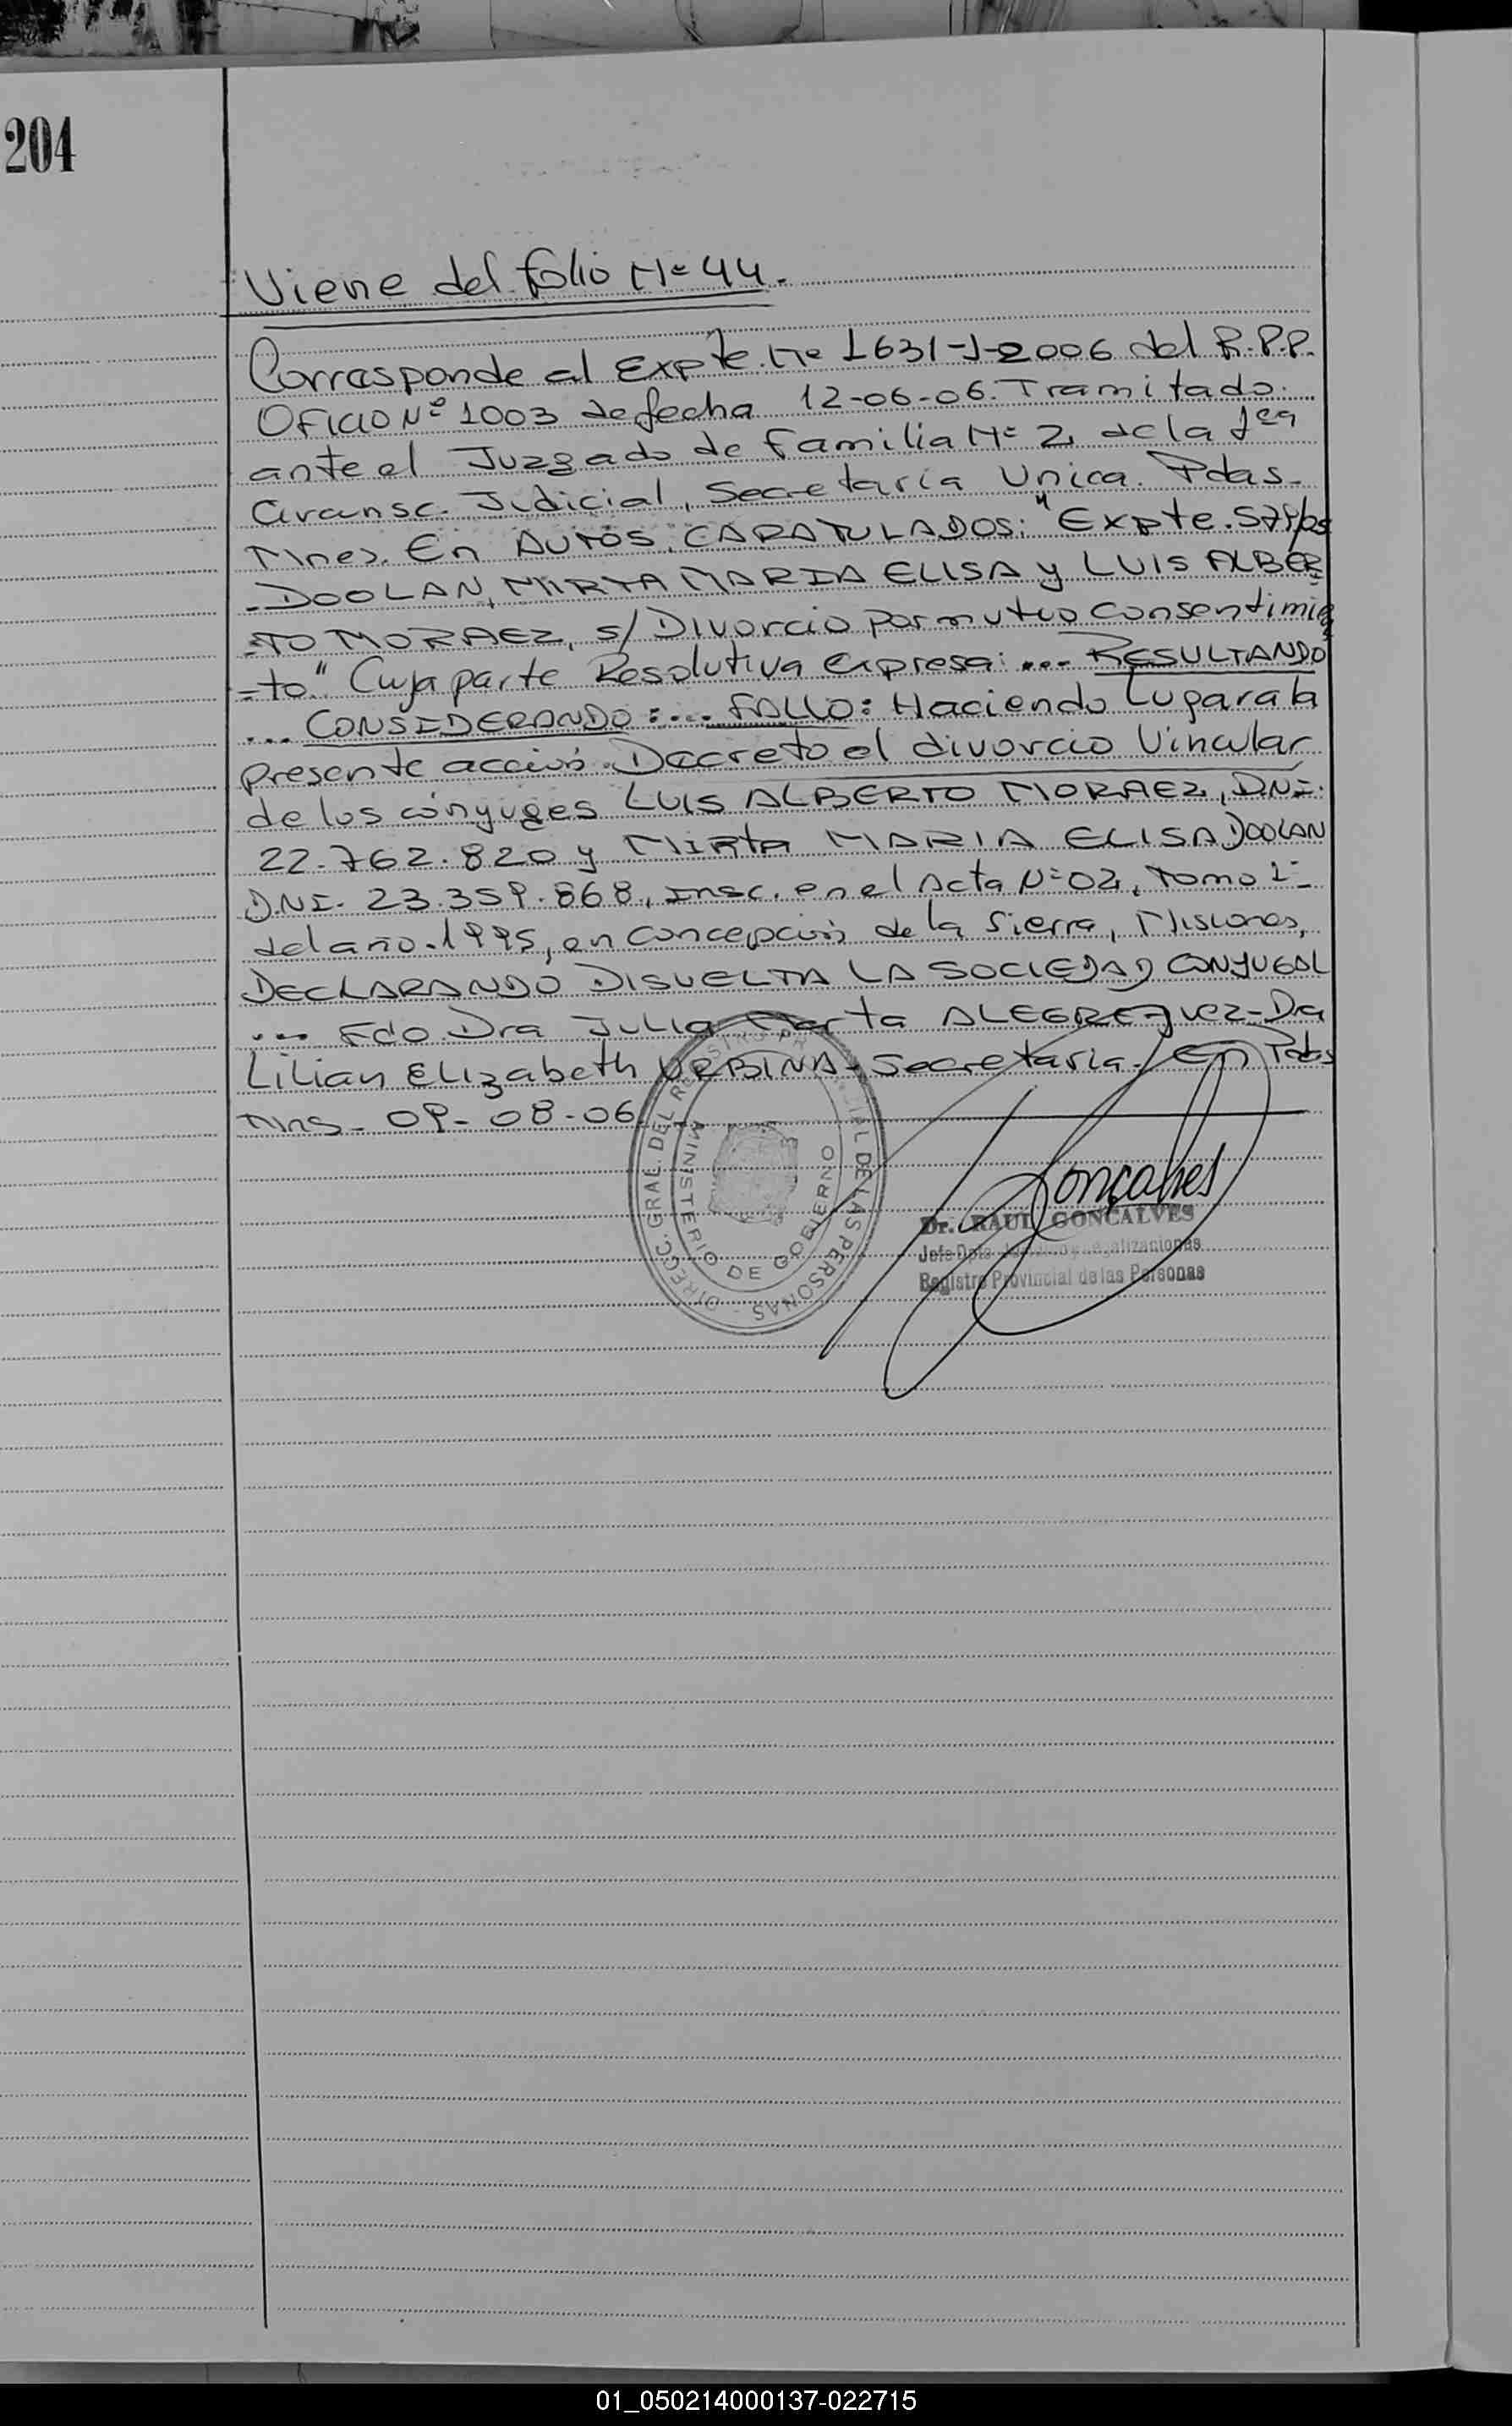 204
Viene del folio Nº 44.
Corresponde al Expte. Nº 1631-J-2006 del R.P.P.
OFICIO Nº 1003 de fecha 12-06-06. Tramitado
ante el Juzgado de Familia Nº 2, de la 1era
Circunsc. Judicial, Secretaría Unica. Pdas-
Mnes. En AUTOS CARATULADOS: "Expte.
-DOOLAN, MIRTA MARIA ELISA y LUIS ALBER
=TO MORAEZ, s/ Divorcio por mutuo consentimien
=to" Cuya parte Resolutiva expresa: ... RESULTANDO
... CONSIDERANDO: ... FALLO: Haciendo Lugar a la
presente acción. Decreto el divorcio Vincular
de los cónyuges LUIS ALBERTO MORAEZ, D.N.I.
22.762.820 y MIRTA MARIA ELISA DOOLAN
D.N.I. 23.359.868, Insc. en el Acta Nº 02, Tomo 1º-
del año 1995, en Concepción de la Sierra, Misiones,
DECLARANDO DISUELTA LA SOCIEDAD CONYUGAL
... Fdo. Dra Julia Marta ALEGRE Juez- Dra
Lilian Elizabeth URBINA- Secretaria. En Pdas
Mns- 09-08-06
DIRECC. GRAL. DEL REGISTRO PROVINCIAL DE LAS PERSONAS -
MINISTERIO DE GOBIERNO
Gonçalves
Dr. RAUL GONCALVES
Jefe Dpto.
Registro Provincial de las Personas
01_050214000137-022715